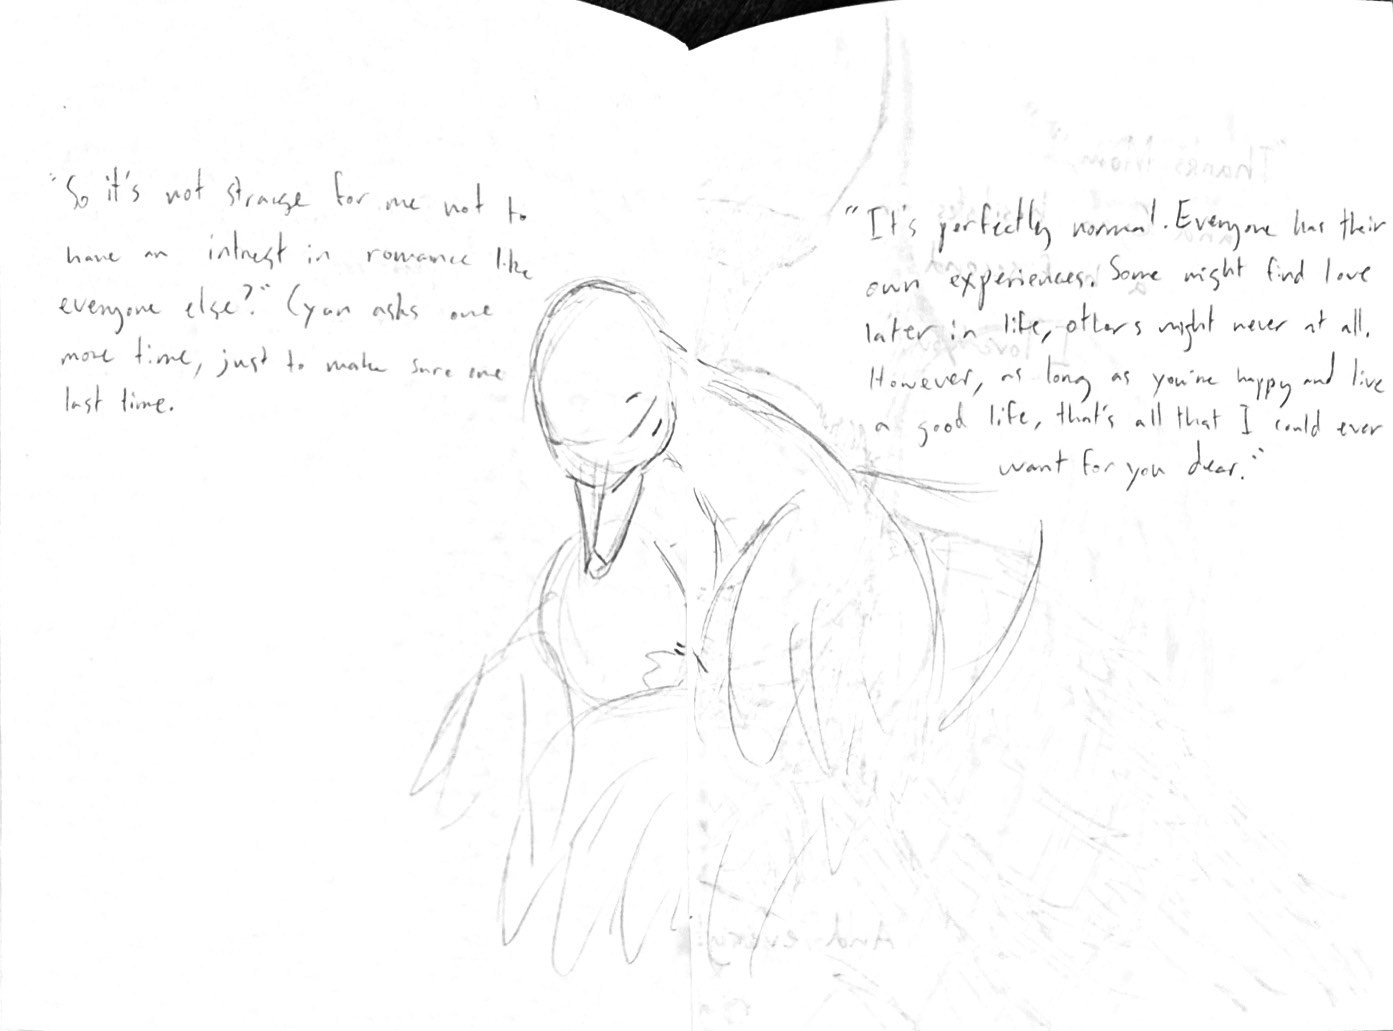 "So it's not strange for me not to
have an intrest in romance like
everyone else?" Cyan asks one
more time, just to make sure one
last time.
"It's perfectly normal. Everyone has their
own experiences. Some might find love
later in life, others might never at all.
However, as long as you're happy and live
a good life, that's all that I could ever
want for you dear."
"Thanks Mom,
And every